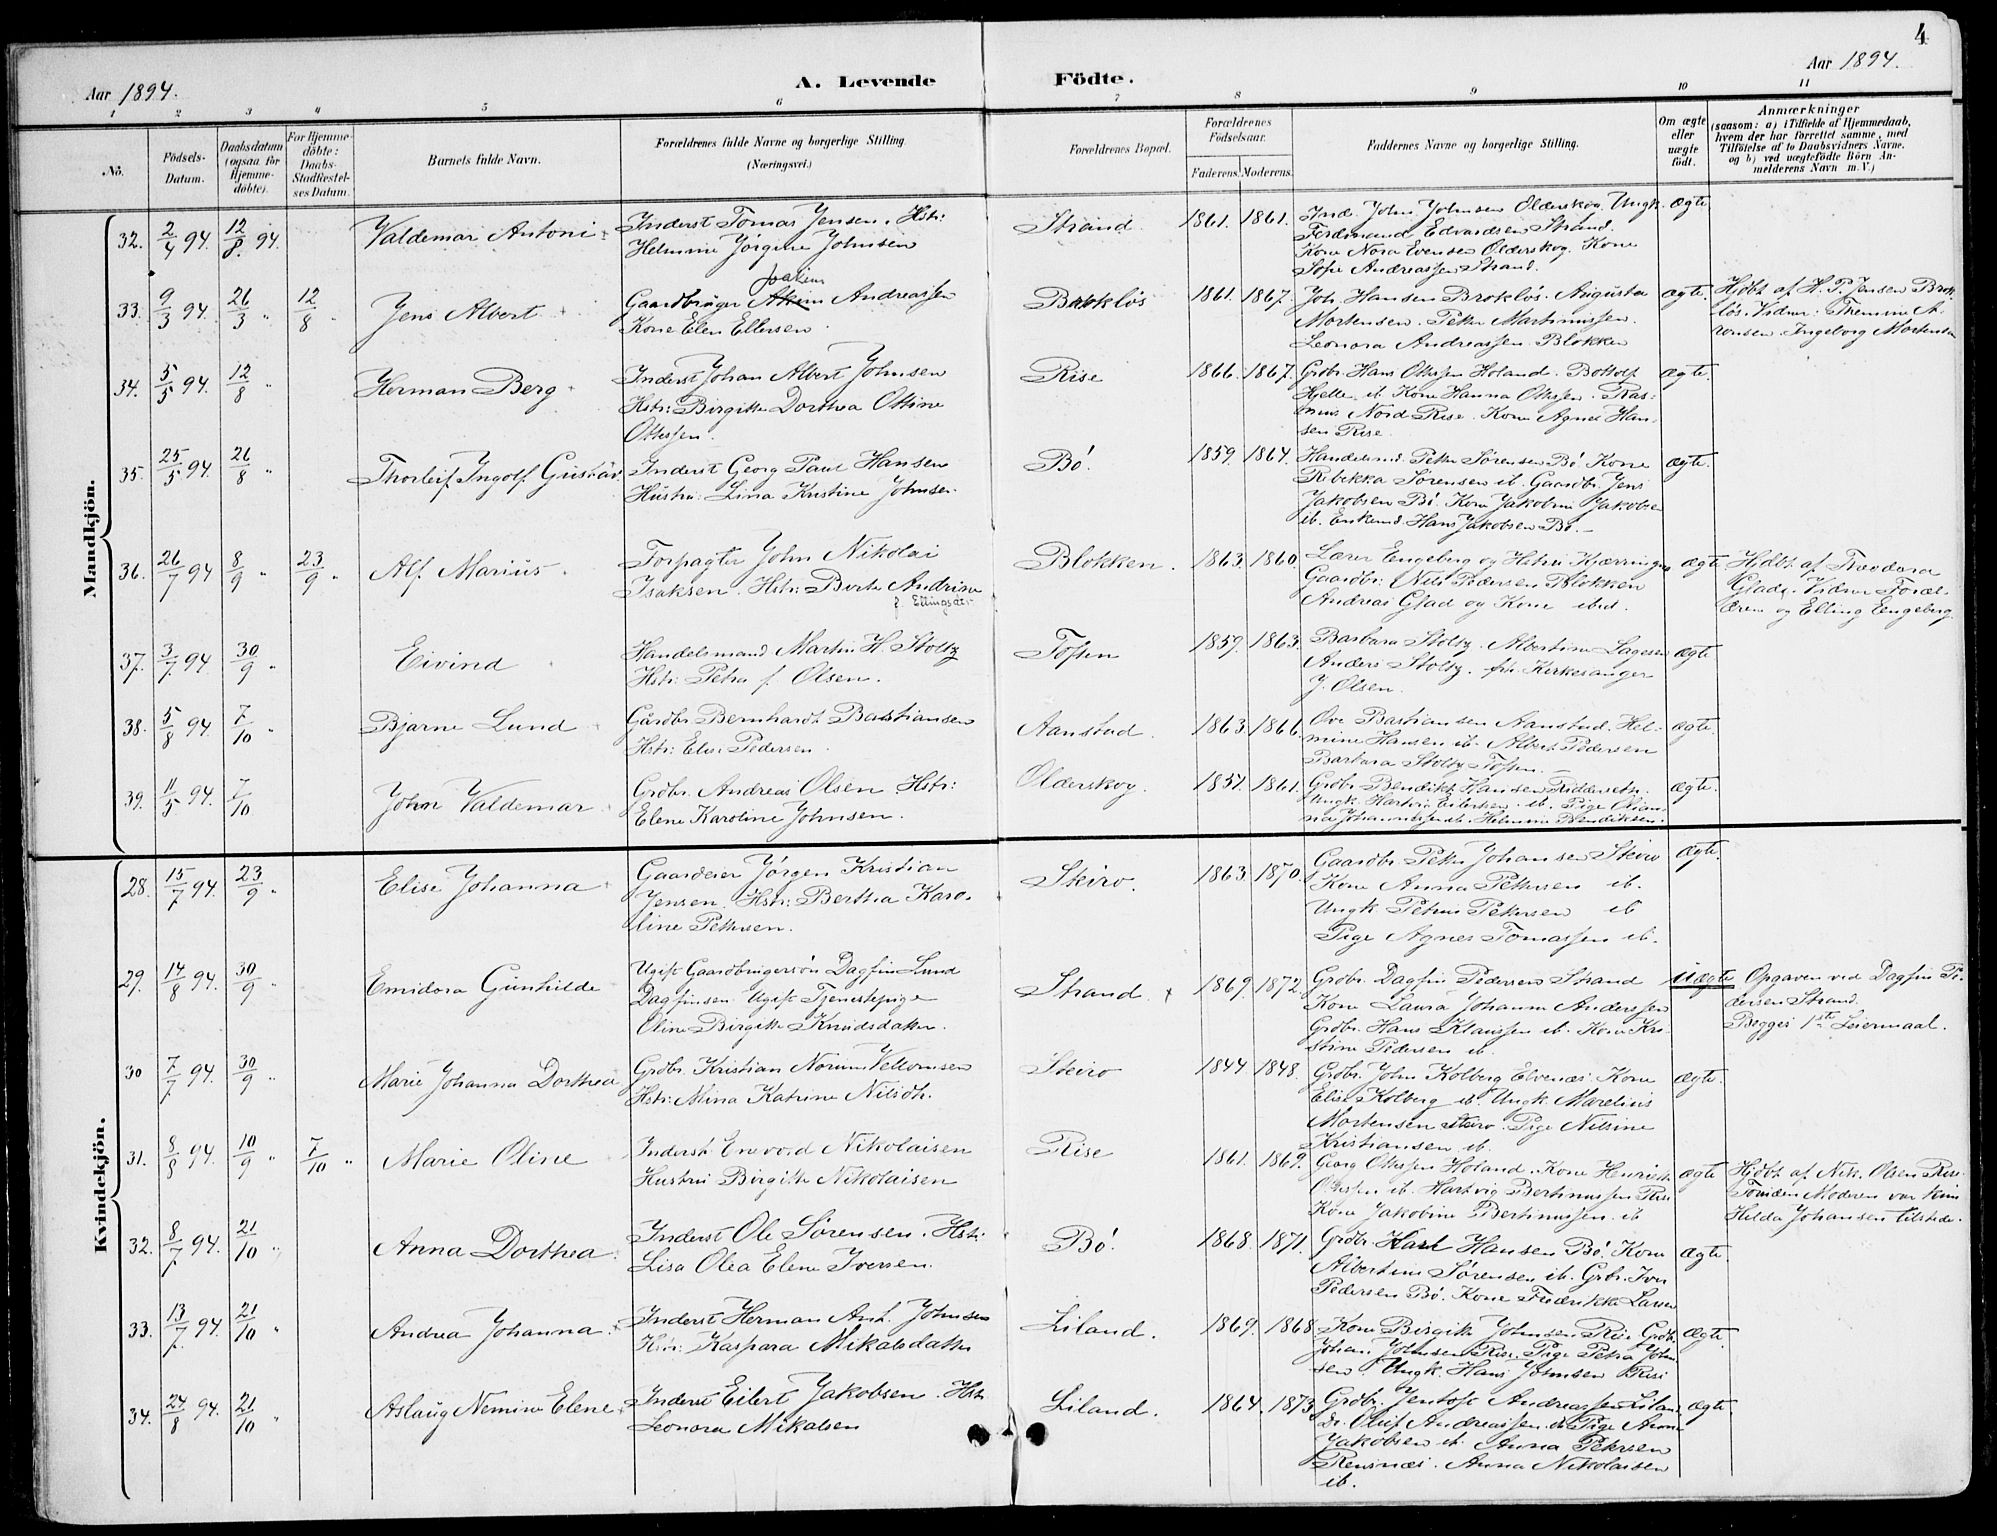 4
Aar 1894. A. Levende Födte. Aar 1894.
1 2 3 4 5 6 7 8 9 10 11
No.
Födsels-Datum.
Daabsdatum (ogsaa for Hjemmedöbte).
For Hjemmedöbte: Daabs-Stadfæstelses Datum.
Barnets fulde Navn.
Forældrenes fulde Navne og borgerlige Stilling.
(Næringsvei.)
Forældrenes Bopæl.
Forældrenes Födselsaar.
Faderens. Moderens.
Faddernes Navne og borgerlige Stilling.
Om ægte eller uægte födt.
Anmærkninger
(saasom: a) i Tilfælde af Hjemmedaab,
hvem der har forrettet samme, med
Tilföielse af to Daabsvidners Navne.
og b) ved uægtefödte Börn An-
melderens Navn m. V.)
Mandkjön.
32. 2/4 94. 12/8 94. Valdemar Antoni Inderst Tomas Jensen. Hstr: Strand. 1861. 1861. Ind. John Johnsen Olderskog. Ungk. ægte
Helmine Jörgine Johnsen Ferdinand Edvardsen Strand.
Kone Nora Evensen Olderskog. Kone
Sofie Andreassen Strand.
Joakim
33. 9/3 94. 26/3 " 12/8 Jens Albert Gaardbruger Andreassen 1861. 1867. Joh. Hansen Brokløs. Augusta ægte. Hjdbt. af H. P. Jensen Brok-
Kone Elen Ellersen. Mortensen. Peter Martinussen. løs. Vidner:
Leonora Andreassen Blokken Ingeborg Mortensen
34. 5/5 94. 12/8 " Herman Berg Inderst Johan Albert Johnsen Rise 1866. 1867. Grdbr. Hans Ottesen Holand. ægte.
Hstr: Birgitte Dorthea Ottine Hjelle ib. Kone Hanna Ottesen. Ras-
Ottesen. mus Nord Rise. Kone Agnes Han-
sen Rise.
35. 25/5 94. 26/8 " Thorleif Ingolf Gustav Inderst Georg Paul Hansen Bö. 1859. 1864. Handelsmd. Peter Sörensen Bö. Kone ægte.
Hustru: Lina Kristine Johnsen. Rebekka Sörensen ib. Gaardbr. Jens
Jakobsen Bö. Kone Jakobine Jakobsen
ib. Enkemd. Hans Jakobsen Bö.
36. 26/7 94 8/9 " 23/9 " Alf Marius. Forpagter John Nikolai Blokken. 1863. 1860. Lærer Engeberg og Hstru Kjærringnes ægte Hjdbt. af Teodora
Isaksen. Hstr: Berte Andrine Gaardbr: Nils Pedersen Blokken Glad. Vidner Foræl-
f. Ellingsdtr. Andreas Glad og Kone ibid. drene og Elling Engeberg.
37. 3/7 94 30/9 " Eivind Handelsmand Martin H. Stoltz Tofsen 1859. 1863. Barbara Stoltz. Albertine Lagesen ægte
Hstr: Petra f. Olsen. Anders Stoltz. frk. Kirkesanger
J. Olsen.
38. 5/8 94 7/10 " Bjarne Lund Gårdbr Bernhardt Bastiansen Aanstad. 1863. 1866. Ove Bastiansen Aanstad. Hel- ægte.
Hstr: Else Pedersen. mine Hansen ib. Albert Pedersen
Barbara Stoltz Tofsen.
39. 11/5 94. 7/10 John Valdemar Grdbr. Andreas Olsen. Hstr: Olderskog. 1857. 1861. Grdbr. Bendikt Hansen ægte.
Elene Karoline Johnsen. Ungk. Hartvig Eilertsen. ib. Pige Olian-
na Johannessen ib. Helmine Bendiksen.
Kvindekjön.
28. 15/7 94. 23/9 " Elise Johanna Gaardeier Jörgen Kristian Skiro. 1863. 1870. Gaardbr Peter Johansen Skiro ægte.
Jensen. Hstr: Berthea Karo- Kone Anna Pettersen ib.
line Pettersen. Ungk Petrus Petersen ib
Pige Agnes Tomassen ib.
29. 14/8 94. 30/9 " Emidora Gunhilde Ugift Gaardbrugersön Dagfin Lund Strand. 1869. 1872. Grdbr. Dagfin Pedersen Strand uægte Opgaven ved Dagfin Pe-
Dagfinsen Ugift Tjenestepige Kone Laura Johanne Anderssen dersen Strand.
Oline Birgitte Knudsdatter. Grdbr. Hans Klaussen ib. Kone Kri- Begges 1ste Leiermaal.
stine Pedersen ib.
30 7/7 94. 30/9 " Marie Johanna Dorthea Grdbr. Kristian Norum Vellomsen Skiro 1844 1848. Grdbr. John Kolberg Elvenæs. Kone ægte.
Hstr: Mina Katrine Nilsdtr. Elise Kolberg ib. Ungk Marelius
Mortensen Skiro. Pige Nilsine
Kristiansen ib.
31. 8/8 94. 10/9 " 7/10 " Marie Oline Inderst Enevold Nikolaisen Rise 1861. 1869. Georg Ottesen Holand. Kone Henrikke ægte Hjdbt af Nik. Olsen Rise.
Hustru Birgitte Nikolaisen Ottesen ib. Hartvig Bertinussen Rise Foruden Moderen var kun
Kone Jakobine Bertinussen ib Hilda Johansen tilstede.
32. 8/7 94. 21/10 " Anna Dorthea Inderst Ole Sörensen. Hstr: Bö. 1868. 1871. Grdbr. Karl Hansen Bö. Kone ægte.
Lisa Olea Elene Iversen. Albertine Sörensen ib. Grbr. Iver
Pedersen Bö. Kone Fredrikke Larsen
33. 13/7 94. 21/10 " Andrea Johanna. Inderst Herman Ant. Johnsen Liland. 1869. 1868 Kone Birgitte Johnsen Rise Grdbr. ægte.
Hstr: Kaspara Mikalsdatter Johan Johnsen Rise Pige Petra John-
sen. Ungk. Hans Johnsen Rise
34. 24/8 94. 21/10 " Aslaug Nemine Elene Inderst Eilert Jakobsen. Hstr. Liland. 1864. 1873. Grdbr. Jentoft Andreassen Liland ægte.
Leonora Mikalsen Do. Oluf Andreassen. ib Pige Anne
Jakobsen ib. Anna Petersen
Rensnæs. Anna Nikolaisen
ib.